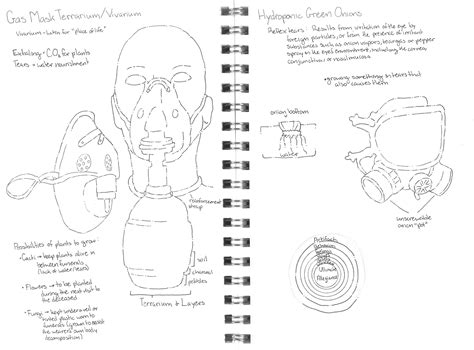 Gas Mask Terrarium/Vivarium
Vivarium - Latin for "place of life"
Exhaling → CO₂ for plants
Tears → water nourishment
reinforcement
strap
soil
charcoal
pebbles
Terrarium & Layers
Possibilities of plants to grow:
· Cacti → keep plants alive in
between funerals
(lack of water/tears)
· Flowers → to be planted
during the next visit to
the deceased.
· Fungi → kept under a veil or
tinted plastic worn to
funerals (grown to match
the wearers own body
decomposition)
Hydroponic Green Onions
Reflex tears: Results from irritation of the eye by
foreign particles, or from the presence of irritant
substances such as onion vapors, tear gas, or pepper
spray in the eye's environment, including the cornea,
conjunctiva, or nasal mucosa.
* growing something in tears that
also causes them *
onion bottom
water
unscrewable
onion "pot"
Artifacts